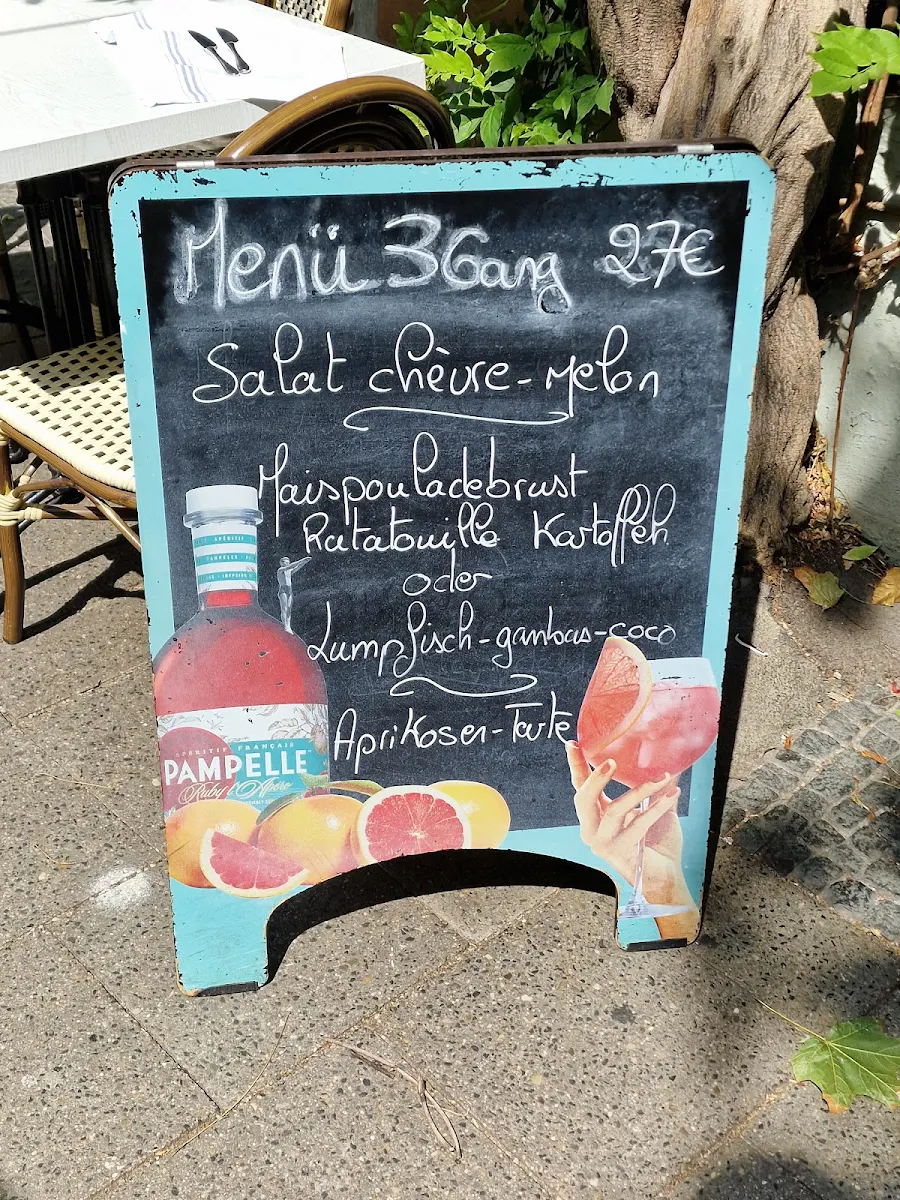 Menü 3Gang 27€
Salat chèvre-Melon
Maispouladebrust
Ratatouille Kartoffeln
oder
Lumpfisch-gambas-coco
Aprikosen-Tarte
APÉRITIF
PAMPELLE
APÉRITIF FRANÇAIS
PAMPELLE
Ruby l'Apéro